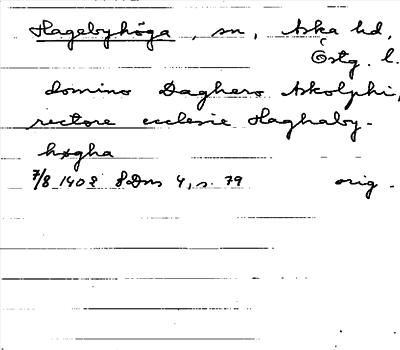 Hagebyhöga, sn, Aska hd,
Östg. l.
domino Daghero Askolphi,
rectore ecclesie Haghaby-
høgha
7/8 1402 SDns 4, s. 79 orig.